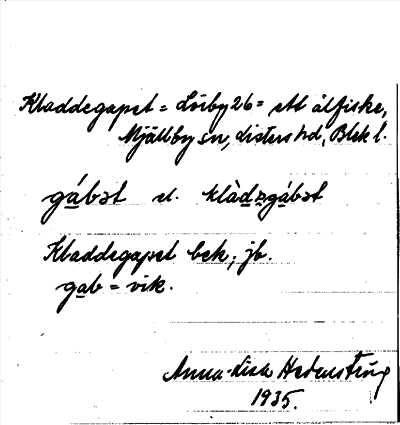 Kladdegapet = Lörby 26 = ett ålfiske,
Mjällby sn, Listers hd, Blek l.
gábət el. klàdzgábət
Kladdegapet bek, jb.
gab = vik.
Anna-Lisa
1935.